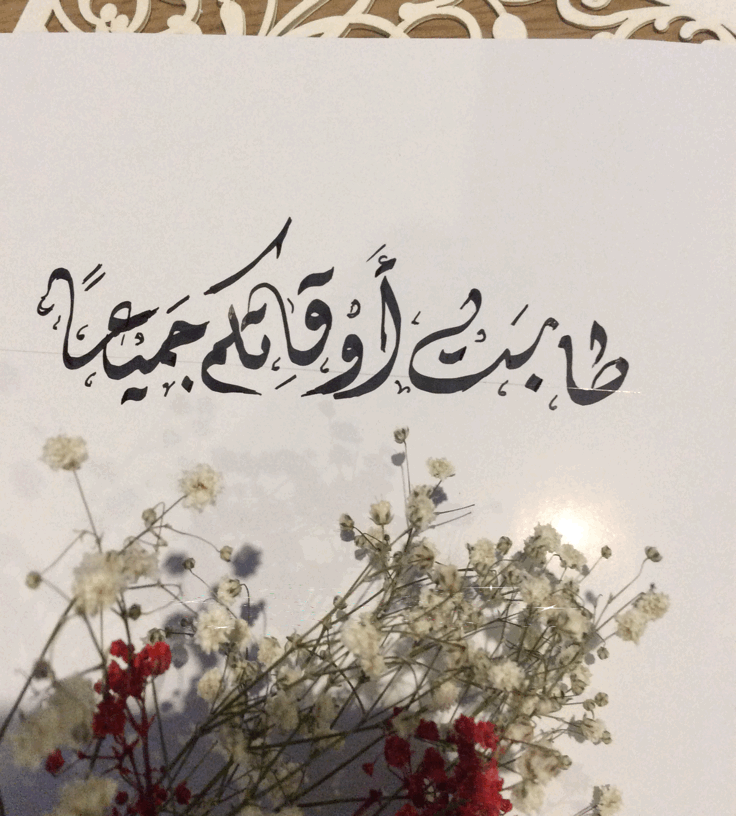 طابت أَوْقاتكم جميعاً